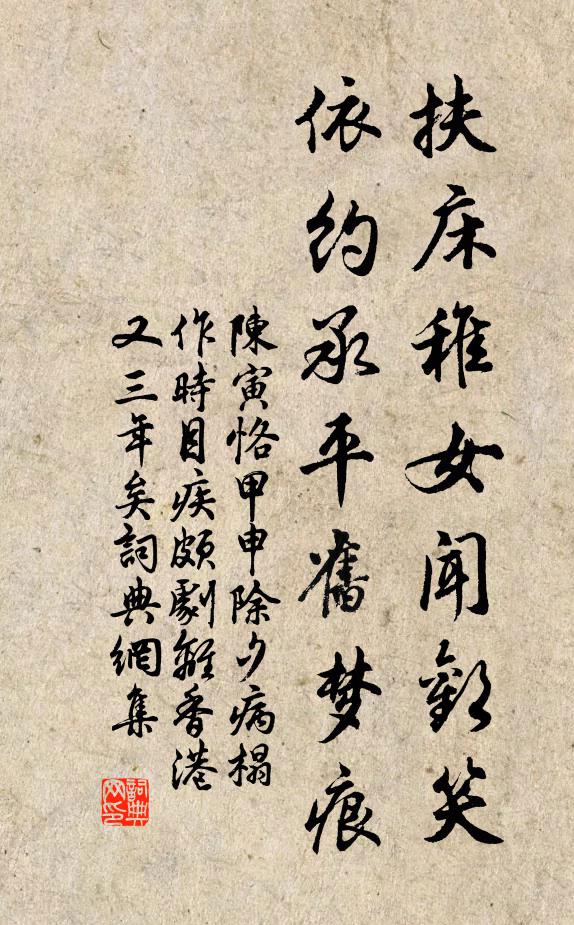 扶床稚女聞歡笑
依約承平舊梦痕
陳寅恪甲申除夕病榻
作時目疾頗劇離香港
又三年矣詞典網集
詞典网印